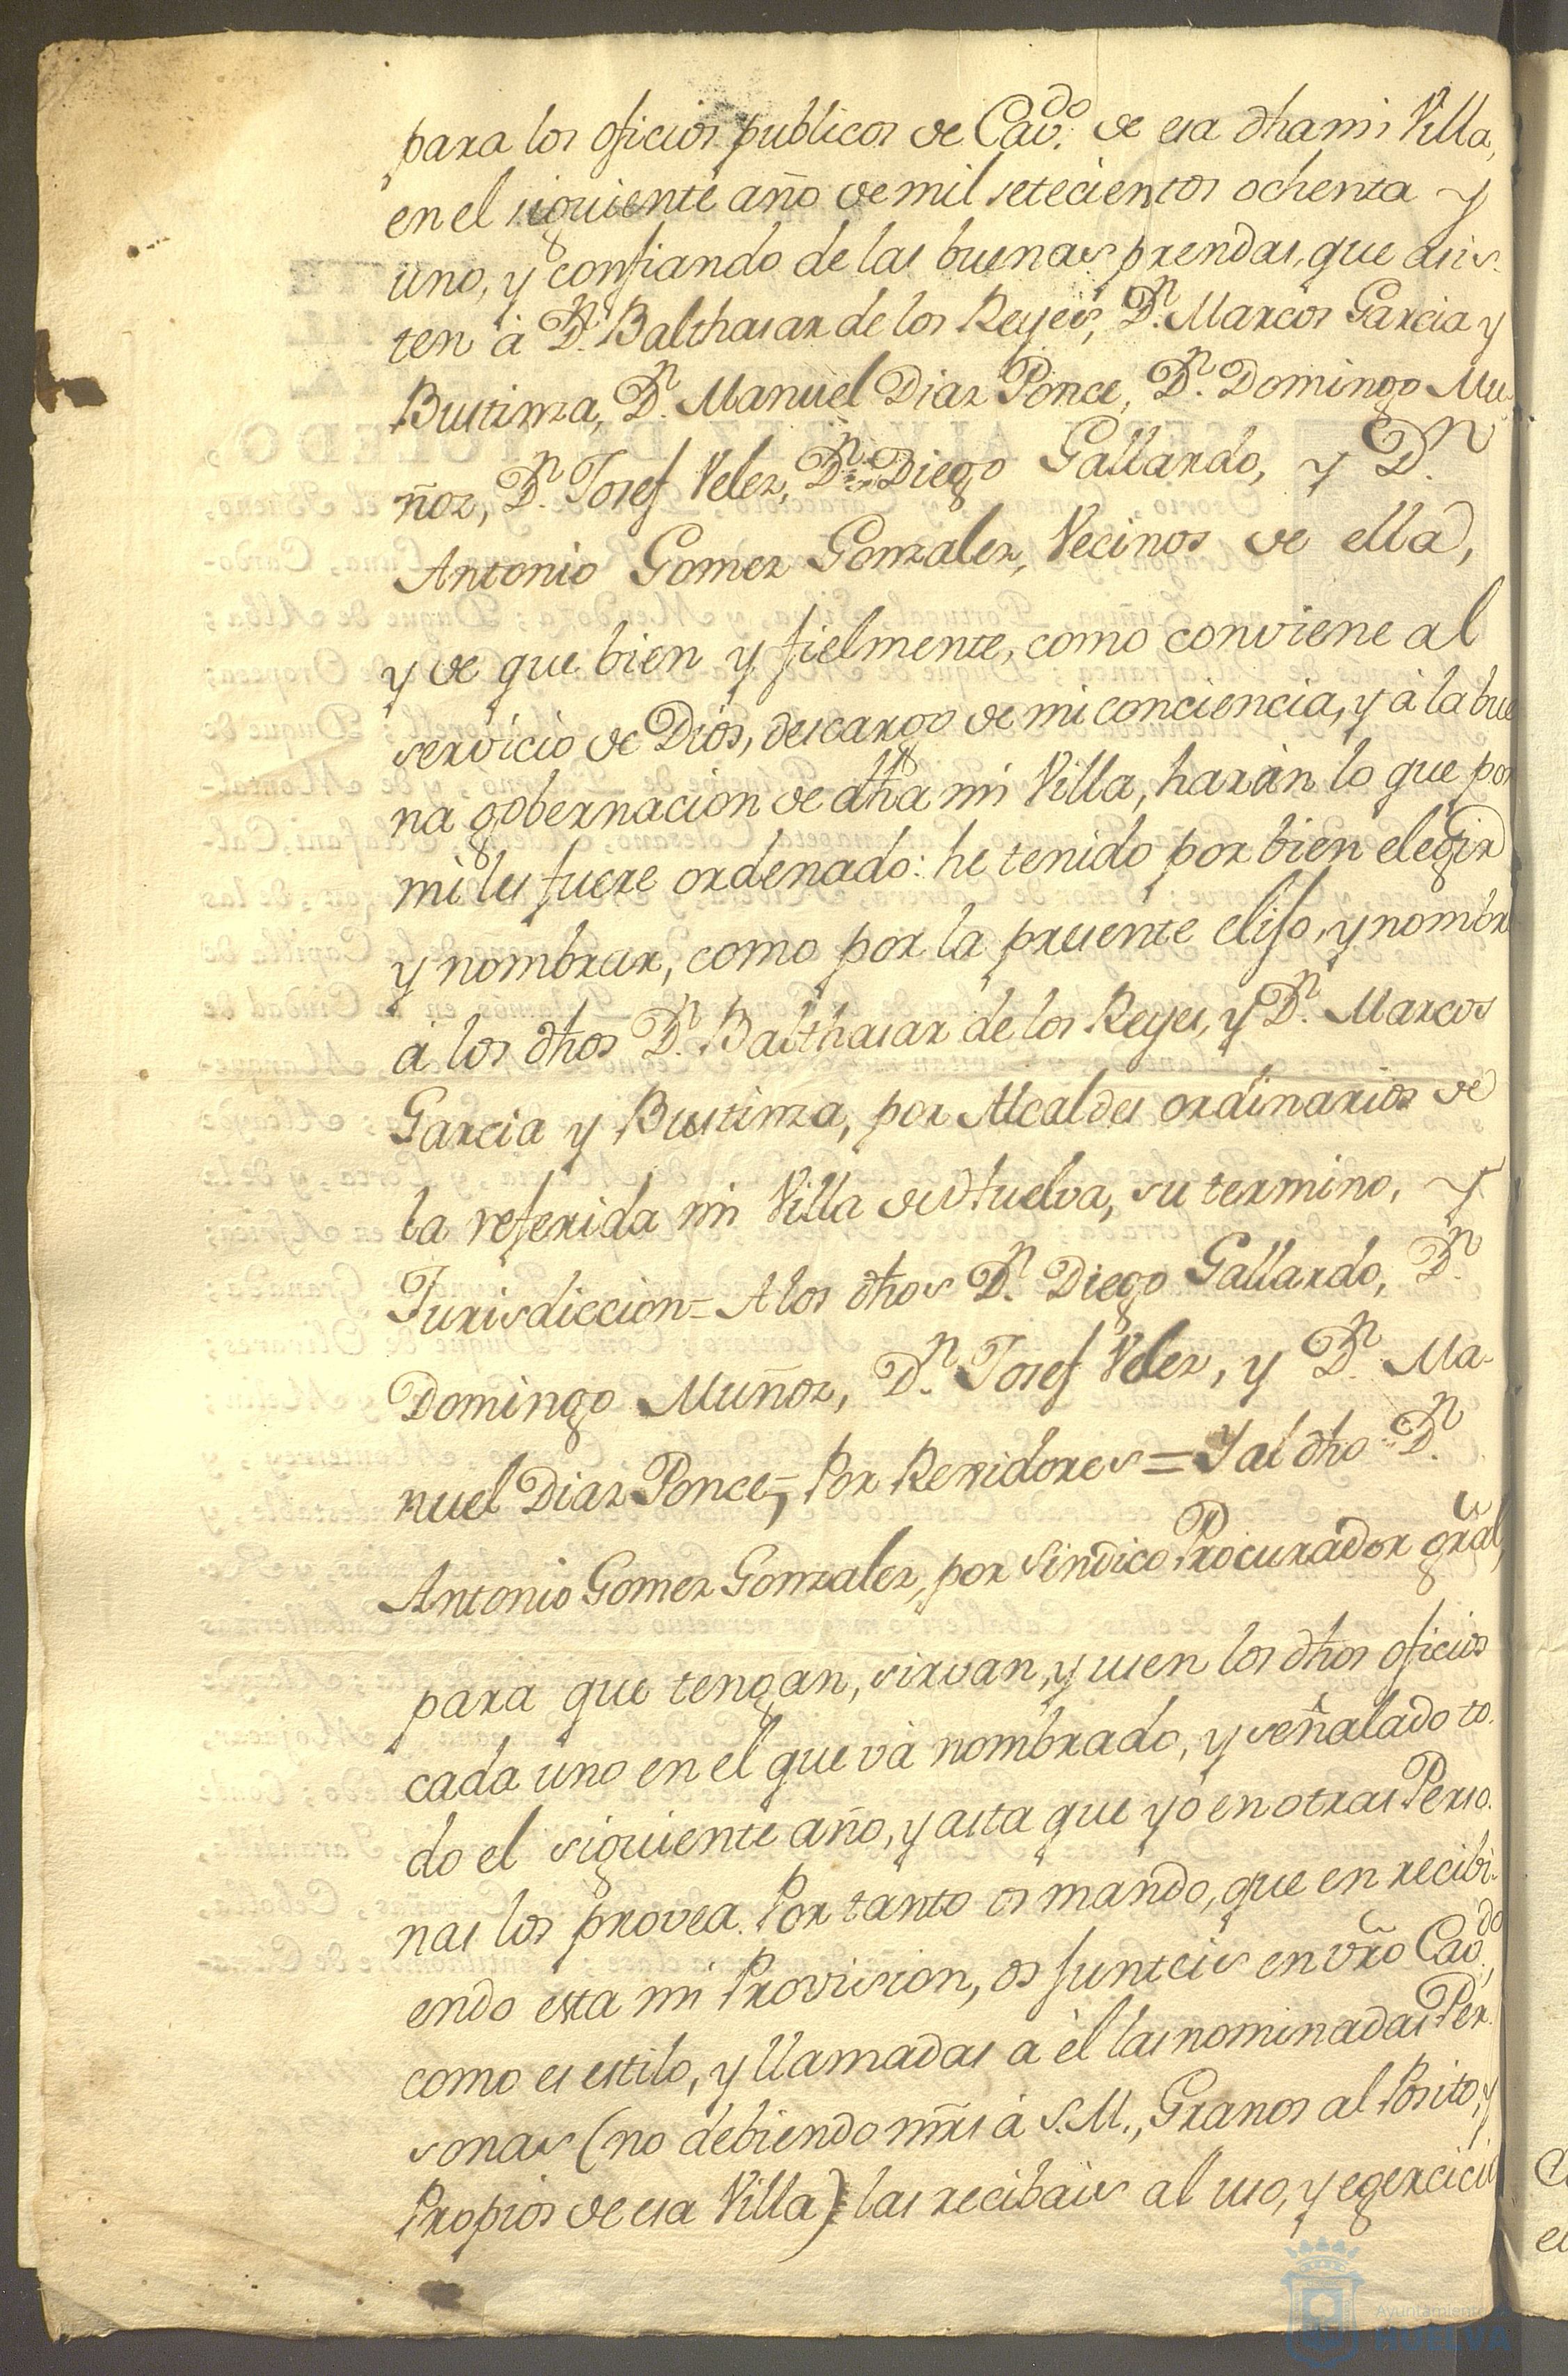 para los oficios publicos de Cav.do de esa dha mi Villa,
en el siguiente año de mil setecientos ochenta y
uno, y confiando de las buenas prendas, que asis-
ten à Dn. Balthasar de los Reyes, Dn. Marcos Garcia y
Bustinza, Dn. Manuel Diaz Ponce, Dn. Domingo Mu-
ñoz, Dn. Josef Velez, Dn. Diego Gallardo, y Dn.
Antonio Gomez Gonzalez, Vecinos de ella,
y de que bien y fielmente, como conviene al
servicio de Dios, descargo de mi conciencia, y à la bue
na gobernacion de dha mi Villa, haràn lo que por
mi les fuere ordenado: he tenido por bien elegir
y nombrar, como por la presente elijo, y nombro
à los dhos Dn. Balthasar de los Reyes, y Dn. Marcos
Garcia y Bustinza, por Alcaldes ordinarios de
la referida mi Villa de Huelva, su termino, y
Jurisdiccion = A los dhos Dn. Diego Gallardo, Dn.
Domingo Muñoz, Dn. Josef Velez, y Dn. Ma-
nuel Diaz Ponce, Por Rexidores = Y al dho Dn.
Antonio Gomez Gonzalez, por Sindico Procurador gral,
para que tengan, sirvan, y usen los dhos oficios
cada uno en el que và nombrado, y señalado to-
do el siguiente año, y asta que yo en otras Perso-
nas los provea. Por tanto os mando, que en recibi-
endo esta mi Provision, os junteis en vro Cav.do,
como es estilo, y llamadas à èl las nominadas Per-
sonas (no debiendo mrs à S.M., Granos al Posito, y
Propios de esa Villa) las recibàis al uso, y egercicio
Ayuntamiento de
HUELVA